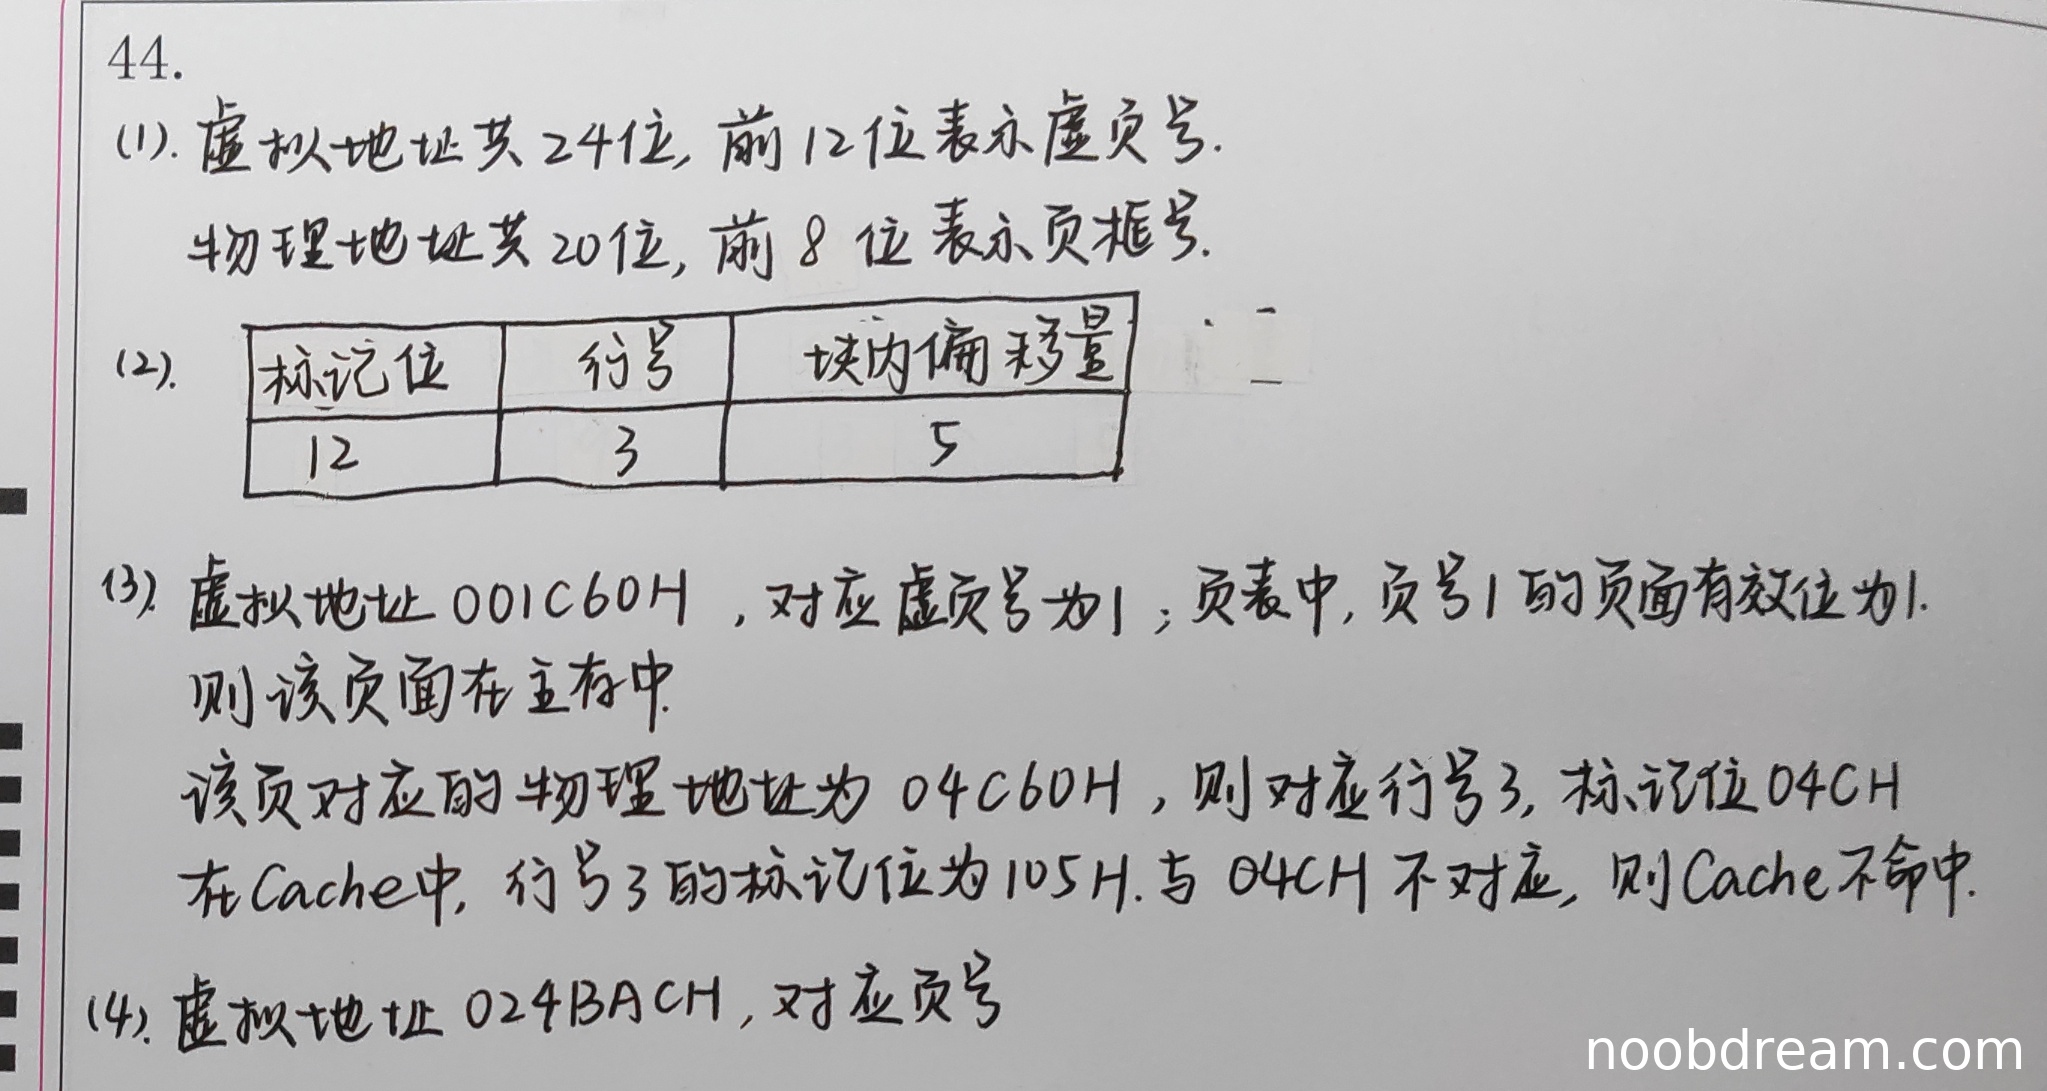 44.
(1). 虚拟地址共24位, 前12位表示虚页号.
物理地址共20位, 前8位表示页框号.
(2). 标记位 行号 块内偏移量
12 3 5
(3). 虚拟地址001C60H, 对应虚页号为1; 页表中, 页号1的页面有效位为1.
则该页面在主存中.
该页对应的物理地址为04C60H, 则对应行号3, 标记位04CH
在Cache中, 行号3的标记位为105H. 与04CH不对应, 则Cache不命中.
(4). 虚拟地址024BACH, 对应页号
noobdream.com